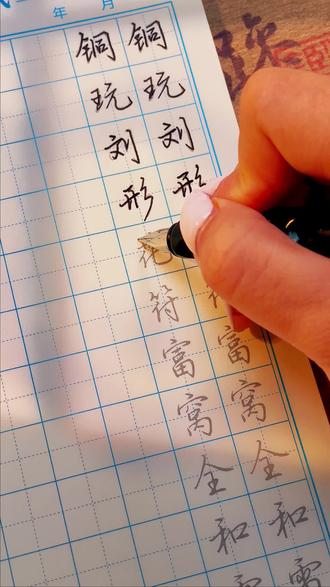 年 月
铜 铜
玩 玩
刘 刘
形 形
花
符
富 富
窝 窝
全 全
和 和